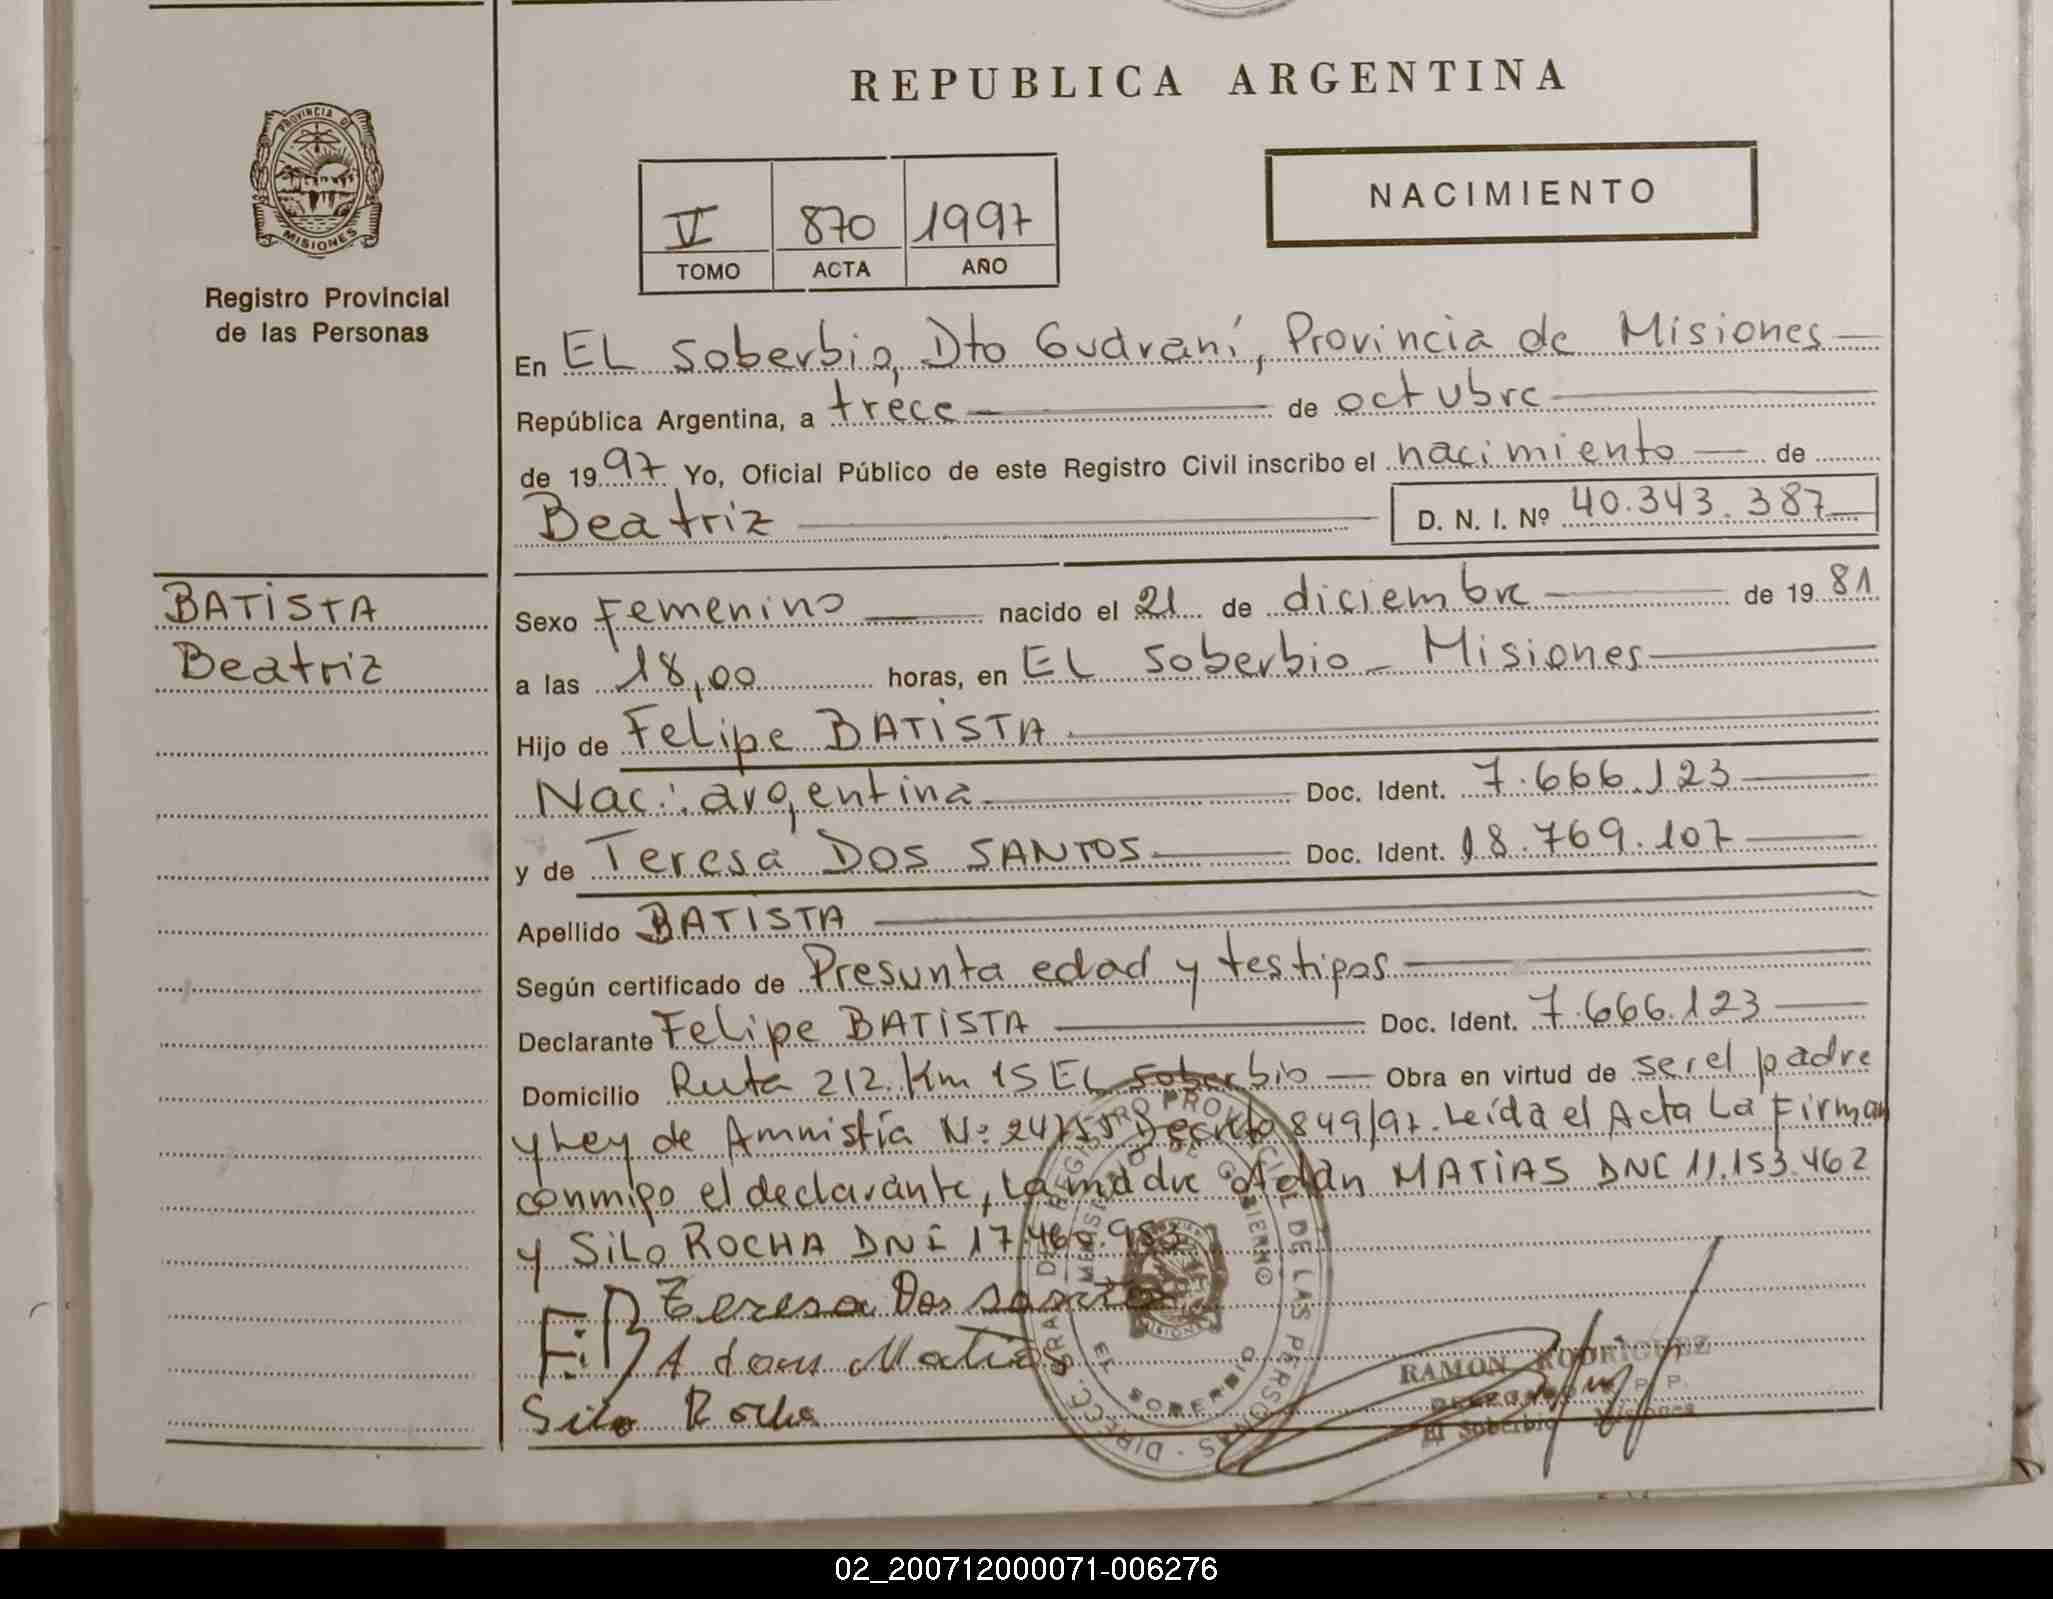 REPUBLICA ARGENTINA
PROVINCIA DE
MISIONES
Registro Provincial
de las Personas
V 870 1997
TOMO ACTA AÑO
NACIMIENTO
En EL Soberbio, Dto Guaraní, Provincia de Misiones
República Argentina, a trece de octubre
de 1997 Yo, Oficial Público de este Registro Civil inscribo el nacimiento de
Beatriz D. N. I. Nº 40.343.387
BATISTA
Beatriz
Sexo Femenino nacido el 21 de diciembre de 1981
a las 18,00 horas, en EL Soberbio - Misiones
Hijo de Felipe BATISTA
Nac.: argentina Doc. Ident. 7.666.123
y de Teresa DOS SANTOS Doc. Ident. 18.769.107
Apellido BATISTA
Según certificado de Presunta edad y testigos
Declarante Felipe BATISTA Doc. Ident. 7.666.123
Domicilio Ruta 212 Km 15 EL Soberbio Obra en virtud de ser el padre
y Ley de Amnistía Nº 24755 Decreto 849/97. Leída el Acta La Firman
conmigo el declarante, La madre Adán MATIAS DNI 11.153.462
y SiLo ROCHA DNI 17.460.983
F.B Teresa Dos santos
Adans Matias
Silo Rocha
DIRECC. GRAL. DE REGISTRO PROVINCIAL DE LAS PERSONAS
MINISTERIO DE GOBIERNO
EL SOBERBIO
RAMON RODRIGUEZ
El Soberbio Misiones
02_200712000071-006276